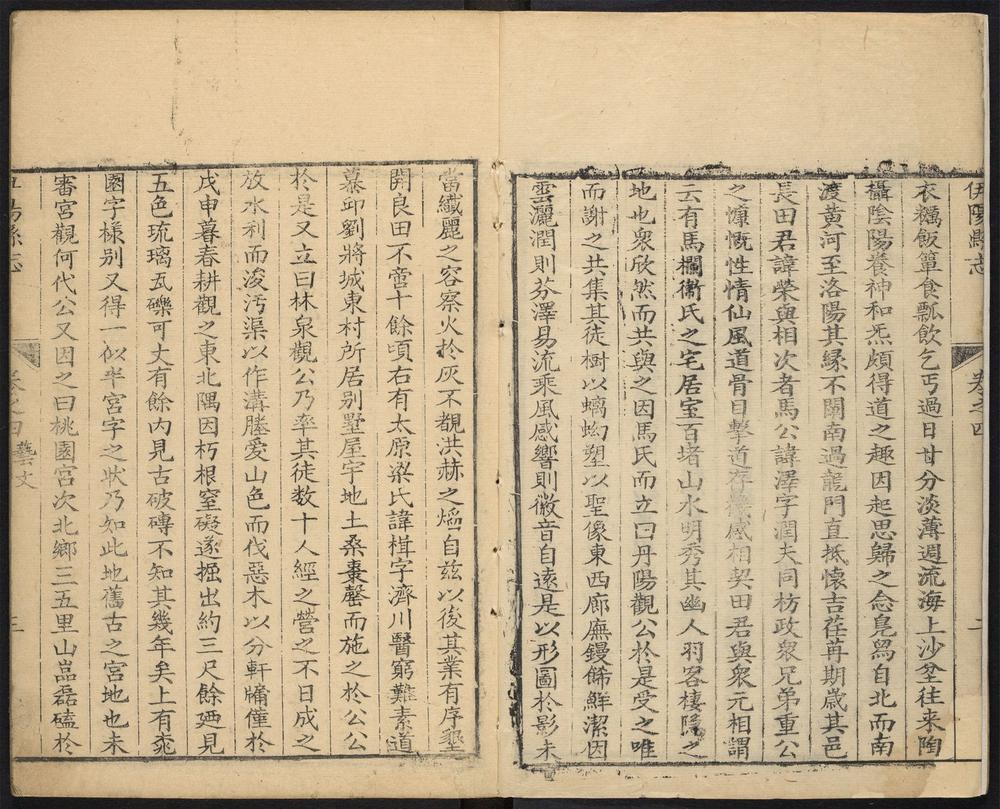 伊陽縣志
卷之四
二
衣糲飯簞食瓢飲乞丐過日甘分淡薄週流海上沙埜往来陶
攝陰陽養神和炁頗得道之趣因起思歸之念鳬舄自北而南
渡黄河至洛陽其縁不闡南過龍門直抵懐吉荏苒期歳其邑
長田君諱榮臾相次者馬公諱澤字潤夫同枋政衆兄弟重公
之慷慨性情仙風道骨目擊道存機感相契田君與衆元相謂
云有馬欄衞氏之宅居室百堵山水明秀其幽人羽客棲隱之
地也衆欣然而共與之因馬氏而立曰丹陽觀公於是受之唯
而謝之共集其徒樹以螭蚴塑以聖像東西廊廡鏝餙鮮潔因
雲灑潤則芬澤易流乘風感響則徽音自遠是以形圖於影未
當纖麗之容察火於灰不覩洪赫之㷔自兹以後其業有序墾
開良田不啻十餘頃右有太原梁氏諱楫字濟川醫窮難素道
慕邱劉將城東村所居别墅屋宇地土桑棗罄而施之於公公
於是又立曰林泉觀公乃率其徒数十人經之營之不日成之
放水利而浚汚渠以作溝塍愛山色而伐惡木以分軒牖僅於
戊申暮春耕觀之東北隅因朽根窒礙遂掘出約三尺餘廼見
五色琉璃瓦礫可丈有餘内見古破磚不知其幾年矣上有𠒎
園字樣别又得一似半宮字之狀乃知此地舊古之宮地也未
審宮觀何代公又因之曰桃園宮次北鄉三五里山嵓磊磕於
卷之四藝文
三